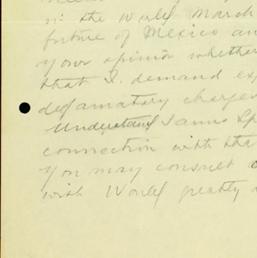 in the World March
future of Mexico an
your opinion whether
that I. demand ex
defamatory charges
Understand I am
connection with tha
You may consult
with World greatly